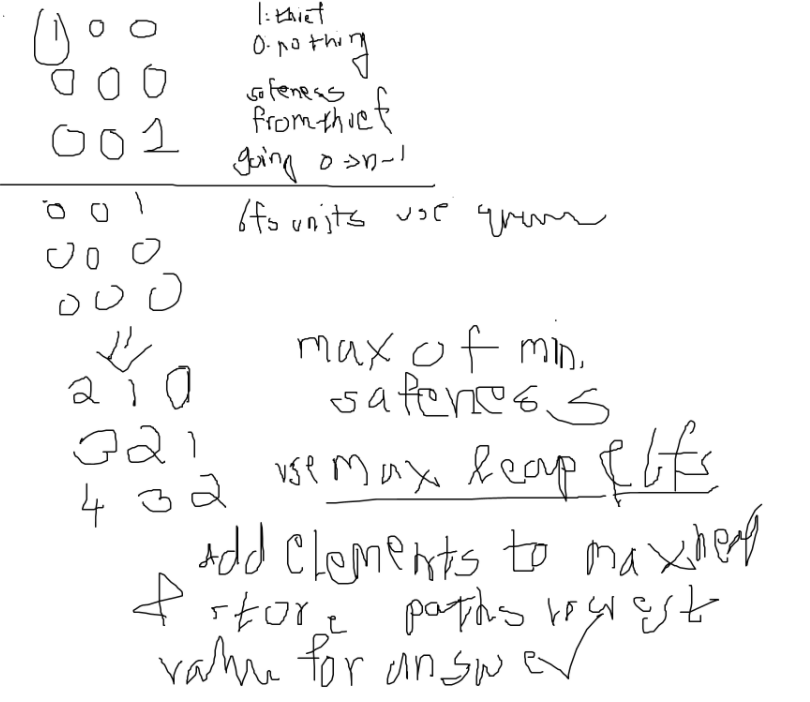 1 0 0
0 0 0
0 0 1
1: thief
0: nothing
safeness
from thief
going 0 -> n-1
0 0 1
0 0 0
0 0 0
bfs units use
2 1 0
3 2 1
4 3 2
max of min.
safeness
use max heap & bfs
Add elements to maxheap
& store paths lowest
value for answer